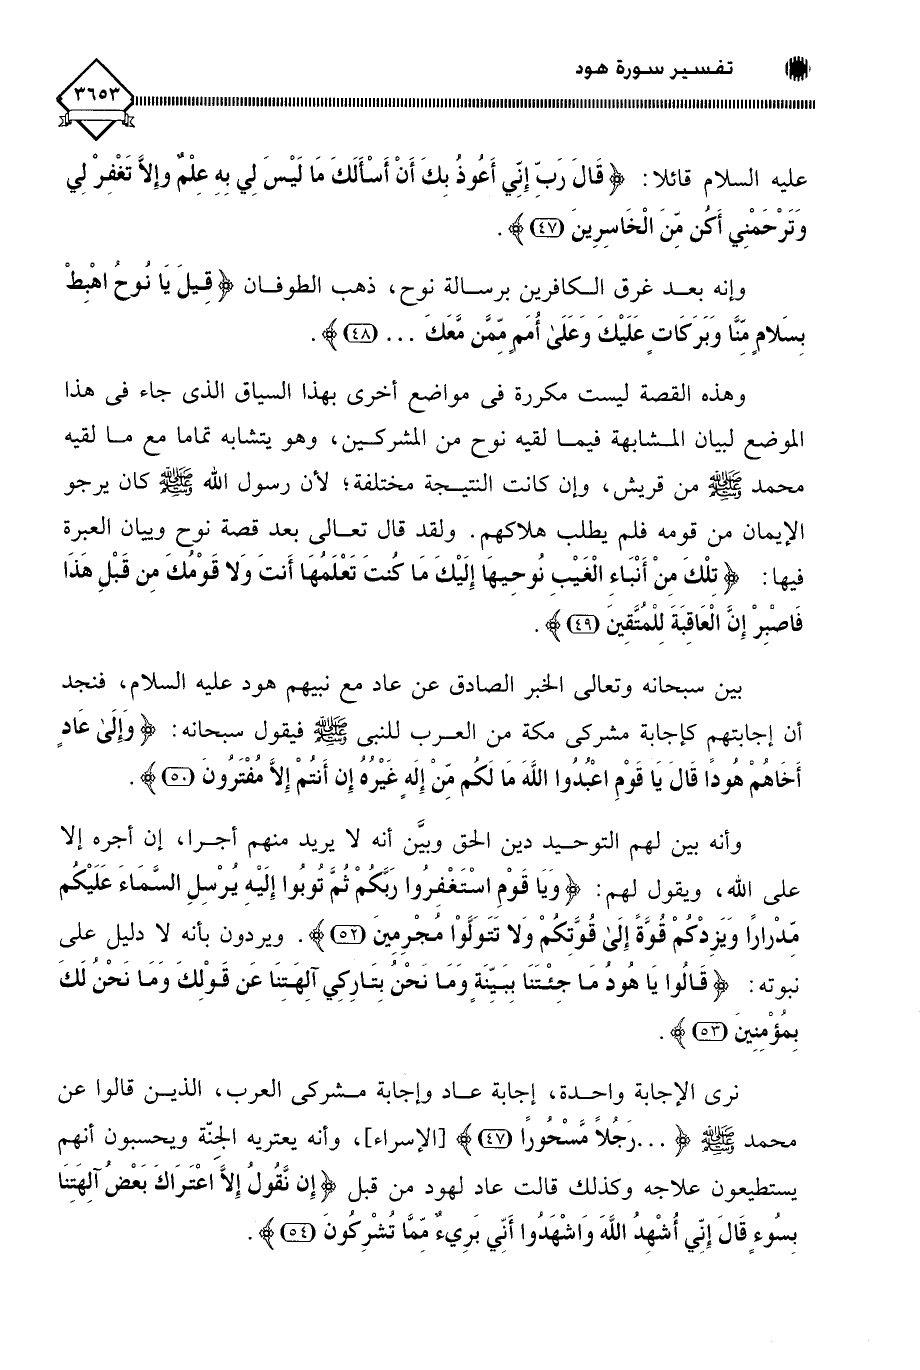 تفسير سورة هود
٣٦٥٣
عليه السلام قائلا: ﴿ قَالَ رَبِّ إِنِّي أَعُوذُ بِكَ أَنْ أَسْأَلَكَ مَا لَيْسَ لِي بِهِ عِلْمٌ وَإِلاَّ تَغْفِرْ لِي
وَتَرْحَمْنِي أَكُن مِّنَ الْخَاسِرِينَ (٤٧) ﴾ .
وإنه بعد غرق الكافرين برسالة نوح، ذهب الطوفان ﴿ قِيلَ يَا نُوحُ اهْبِطْ
بِسَلامٍ مِّنَّا وَبَرَكَاتٍ عَلَيْكَ وَعَلَىٰ أُمَمٍ مِّمَّن مَّعَكَ ... (٤٨) ﴾ .
وهذه القصة ليست مكررة فى مواضع أخرى بهذا السياق الذى جاء فى هذا
الموضع لبيان المشابهة فيما لقيه نوح من المشركين، وهو يتشابه تماما مع ما لقيه
محمد ﷺ من قريش، وإن كانت النتيجة مختلفة؛ لأن رسول الله ﷺ كان يرجو
الإيمان من قومه فلم يطلب هلاكهم. ولقد قال تعالى بعد قصة نوح وبيان العبرة
فيها: ﴿ تِلْكَ مِنْ أَنْبَاءِ الْغَيْبِ نُوحِيهَا إِلَيْكَ مَا كُنتَ تَعْلَمُهَا أَنتَ وَلا قَوْمُكَ مِن قَبْلِ هَذَا
فَاصْبِرْ إِنَّ الْعَاقِبَةَ لِلْمُتَّقِينَ (٤٩) ﴾ .
بين سبحانه وتعالى الخبر الصادق عن عاد مع نبيهم هود عليه السلام، فنجد
أن إجابتهم كإجابة مشركى مكة من العرب للنبى ﷺ فيقول سبحانه: ﴿ وَإِلَىٰ عَادٍ
أَخَاهُمْ هُودًا قَالَ يَا قَوْمِ اعْبُدُوا اللَّهَ مَا لَكُم مِّنْ إِلَهٍ غَيْرُهُ إِنْ أَنتُمْ إِلاَّ مُفْتَرُونَ (٥٠) ﴾ .
وأنه بين لهم التوحيد دين الحق وبيَّن أنه لا يريد منهم أجرا، إن أجره إلا
على الله، ويقول لهم: ﴿ وَيَا قَوْمِ اسْتَغْفِرُوا رَبَّكُمْ ثُمَّ تُوبُوا إِلَيْهِ يُرْسِلِ السَّمَاءَ عَلَيْكُم
مِّدْرَارًا وَيَزِدْكُمْ قُوَّةً إِلَىٰ قُوَّتِكُمْ وَلا تَتَوَلَّوْا مُجْرِمِينَ (٥٢) ﴾ . ويردون بأنه لا دليل على
نبوته: ﴿ قَالُوا يَا هُودُ مَا جِئْتَنَا بِبَيِّنَةٍ وَمَا نَحْنُ بِتَارِكِي آلِهَتِنَا عَن قَوْلِكَ وَمَا نَحْنُ لَكَ
بِمُؤْمِنِينَ (٥٣) ﴾ .
نرى الإجابة واحدة، إجابة عاد وإجابة مشركى العرب، الذين قالوا عن
محمد ﷺ ﴿ ...رَجُلاً مَّسْحُورًا (٤٧) ﴾ [الإسراء]، وأنه يعتريه الجِنّة ويحسبون أنهم
يستطيعون علاجه وكذلك قالت عاد لهود من قبل ﴿ إِن نَّقُولُ إِلاَّ اعْتَرَاكَ بَعْضُ آلِهَتِنَا
بِسُوءٍ قَالَ إِنِّي أُشْهِدُ اللَّهَ وَاشْهَدُوا أَنِّي بَرِيءٌ مِّمَّا تُشْرِكُونَ (٥٤) ﴾ .